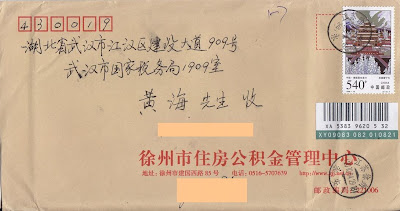 430019
湖北省武汉市江汉区建设大道909号
武汉市国家税务局1909室
黄海 先生 收
540分
中国邮政
XA 5383 9620 5 32
徐州市住房公积金管理中心
地址：徐州市建国西路85号 电话：0516-5707679
邮政编码:221006